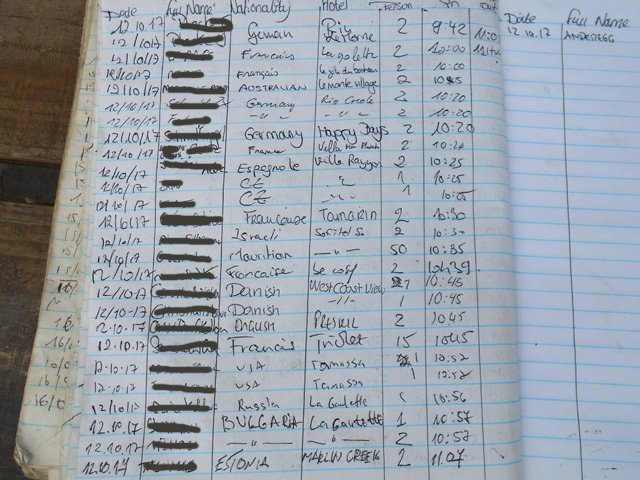 Date Full Name Nationality Hotel Person In Out
12.10.17 German Pir Le Morne 2 9:42 11:00
12/10/17 Francais La golette 2 10:00
12/10/17 Français 2 10:00
12/10/17 AUSTRALIAN le morne village 2
12/10/17 Germany Rio Creole 2 10:20
12/10/17 —"— —"— 2 10:20
12/10/17 Germany Happy Days 2 10:20
12/10/17 France Villa 2
12/10/17 Espagnole Villa 2 10:25
12/10/17 CZ 1 10:25
12/10/17 CZ 1
12/10/17 Francaise Tamarin 2 10:30
12/10/17 Israeli 2 10:30
12/10/17 Mauritian —"— 50 10:35
12/10/17 Francaise 2 10h39
12/10/17 Danish West Coast View 1 10:45
12/10/17 Danish —"— 1 10:45
12.10.17 ENGLISH PRESKIL 2 1045
12.10.17 Francais Triolet 15 1045
12.10.17 USA Tamassa 1 10:52
12.10.17 USA Tamassa 1
12/10/17 Russia La Gaulette 10:56
12.10.17 BULGARIA La Gaulette 1 10:57
12.10.17 —"— —"— 2 10:57
12.10.17 ESTONIA MARLIN CREEK 2 11.07
Date Full Name
12.10.17 ANDEREGG